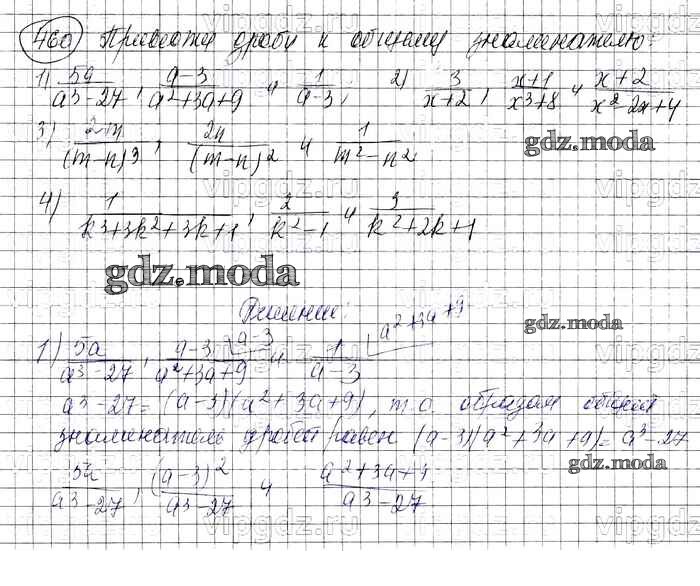 460 Приведите дроби к общему знаменателю:
1) 5a/(a³-27), (a-3)/(a²+3a+9) и 1/(a-3); 2) 3/(x+2), (x+1)/(x³+8) и (x+2)/(x²-2x+4)
gdz.moda
3) 2m/(m-n)³, 2n/(m-n)² и 1/(m²-n²)
4) 1/(k³+3k²+3k+1), 2/(k²-1) и 3/(k²+2k+1)
gdz.moda
Решение:
gdz.moda
1) 5a/(a³-27), (a-3)/(a²+3a+9) (a-3 и 1/(a-3) (a²+3a+9
a³-27=(a-3)(a²+3a+9), т.о. образом общий
знаменатель дробей равен (a-3)(a²+3a+9)=a³-27
gdz.moda
5a/(a³-27), (a-3)²/(a³-27) и (a²+3a+9)/(a³-27)
vipgdz.ru